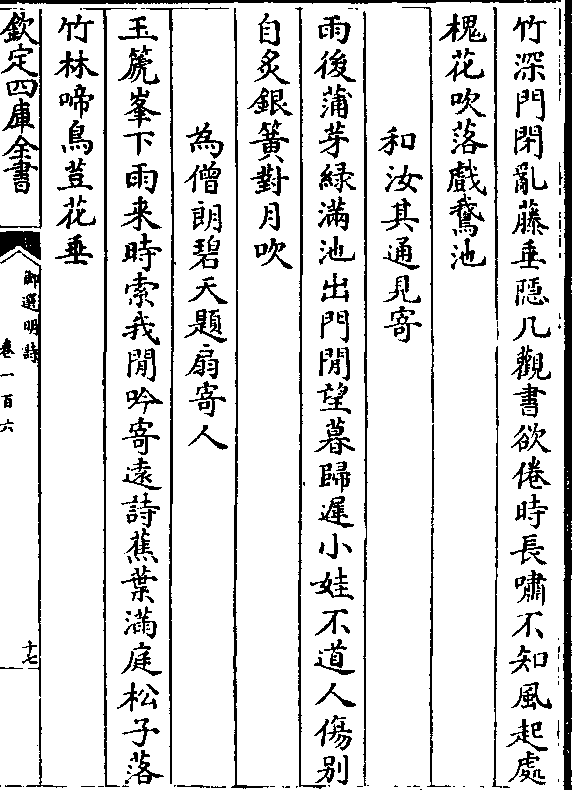 竹深門閉亂藤垂隠几觀書欲倦時長嘯不知風起處
槐花吹落戲鵞池
和汝其通見寄
雨後蒲芽緑滿池出門閒望暮歸遲小娃不道人傷别
自炙銀簧對月吹
為僧朗碧天題扇寄人
玉篪峯下雨来時索我閒吟寄遠詩蕉葉滿庭松子落
竹林啼鳥荳花垂
欽定四庫全書
御選明詩
卷一百六
十七